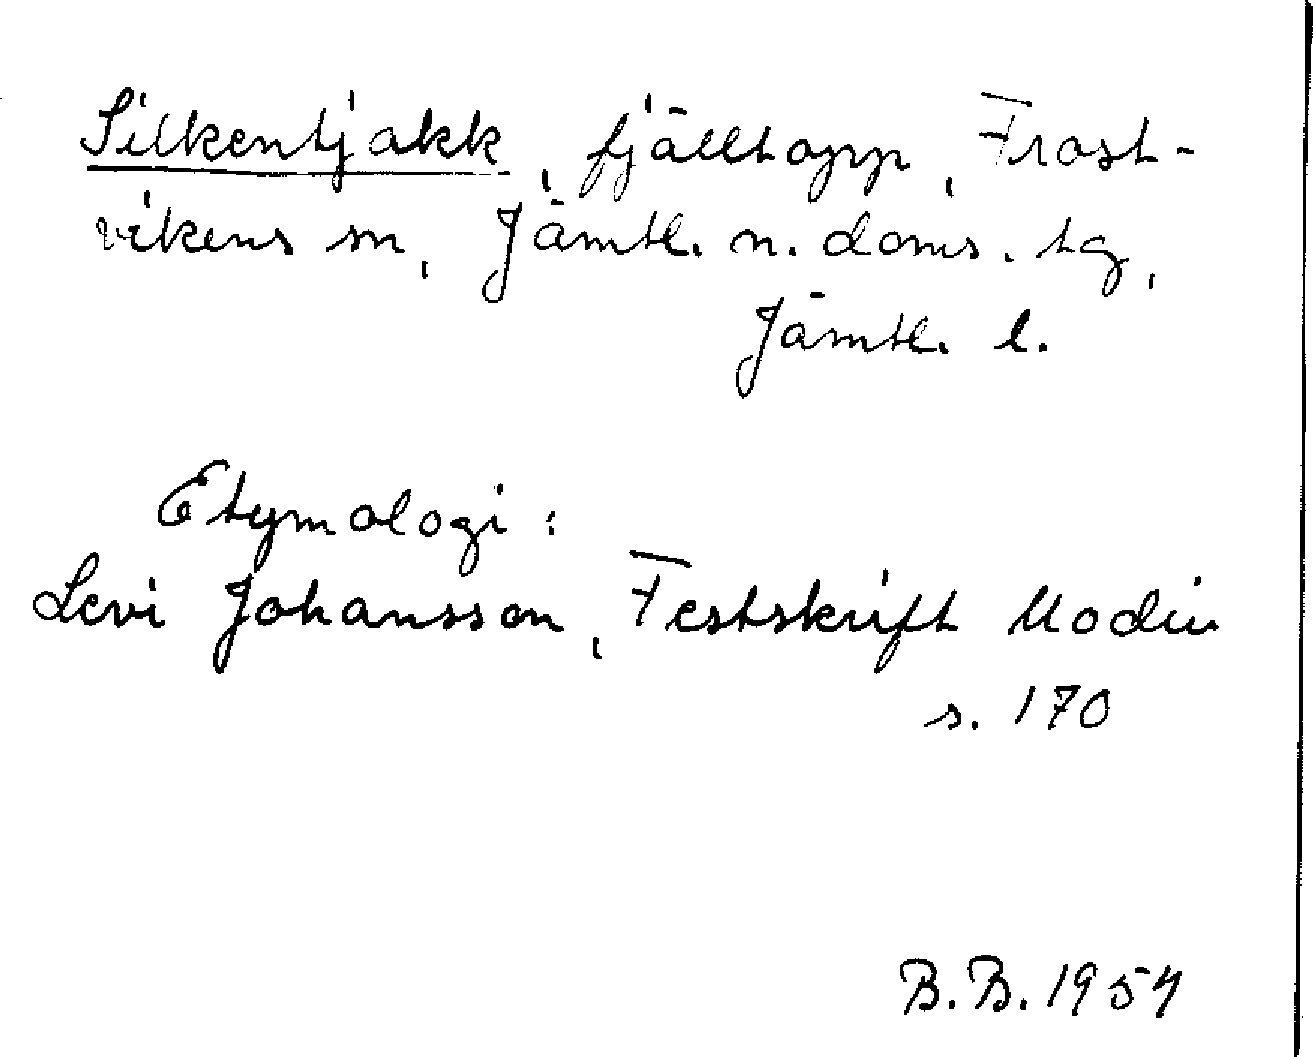 Silkentjakk, fjälltopp, Frost-
vikens sn, Jämtl. n. doms. tg,
Jämtl. l.
Etymologi:
Levi Johansson, Festskrift Modin
s. 170
B.B. 1954